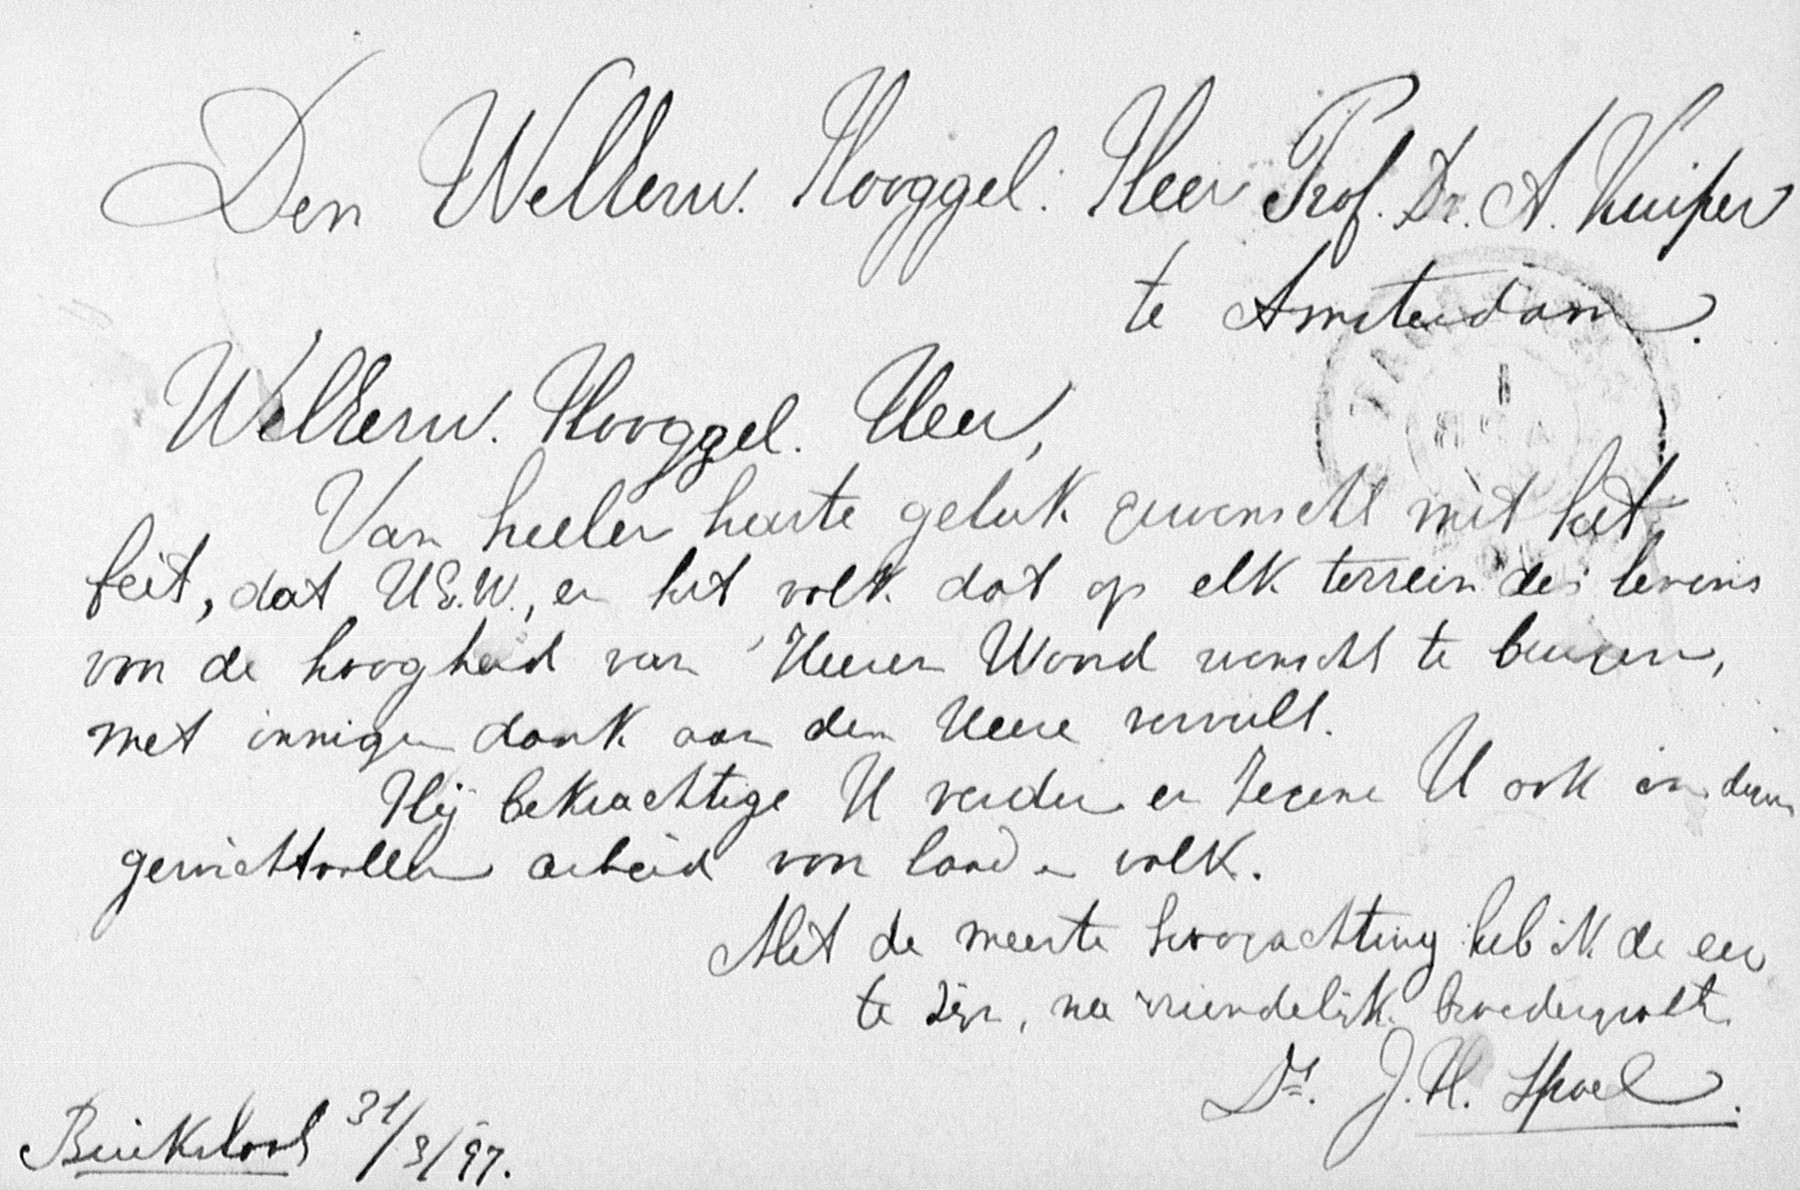 Den WelEerw. Hooggel. Heer Prof. Dr. A. Kuiper
te Amsterdam.
WelEerw. Hooggel. Heer,
Van heeler harte geluk gewenscht met het
feit, dat U E.W., en het volk dat op elk terrein des levens
von de hoogheid van 's Heeren Woord wenscht te buigen,
met innigen dank aan den Heere vervult.
Hij bekrachtige U verder en zegene U ook in dezen
gewichtvollen arbeid von land en volk.
Met de meeste hoogachting heb ik de eer
te zijn, na vriendelijk broedergroet
Ds. J. H. Spoel.
Buiksloot 31/3/97.
1
APR